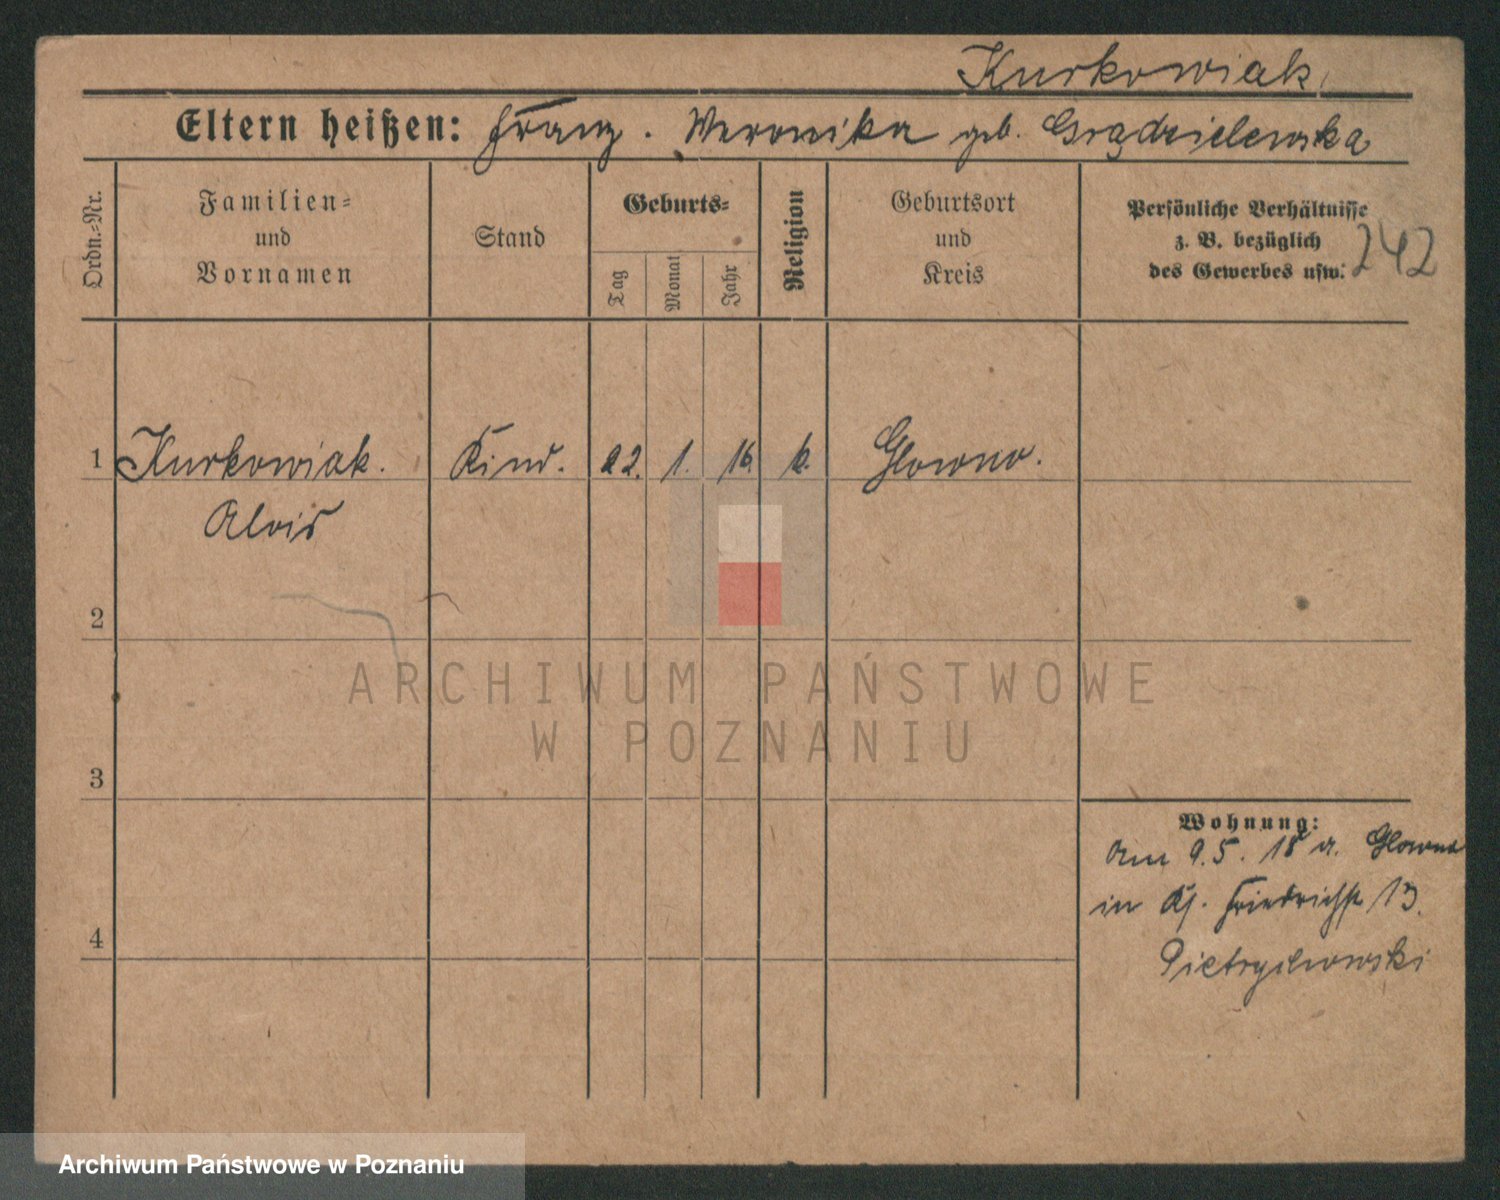 Kurkowiak,
Eltern heißen: Franz. Weronika geb. Grądzielewska
Ordn.-Nr.
Familien- und Vornamen
Stand
Geburts-
Tag
Monat
Jahr
Religion
Geburtsort und Kreis
Persönliche Verhältnisse
z. B. bezüglich
des Gewerbes usw.
242
1 Kurkowiak. Kind. 22. 1. 16. k. Glowno.
Alois
2
3
4
Wohnung:
Am 9.5. 18 v. Glowno
in Friedrichstr 13.
ARCHIWUM PAŃSTWOWE
W POZNANIU
Archiwum Państwowe w Poznaniu